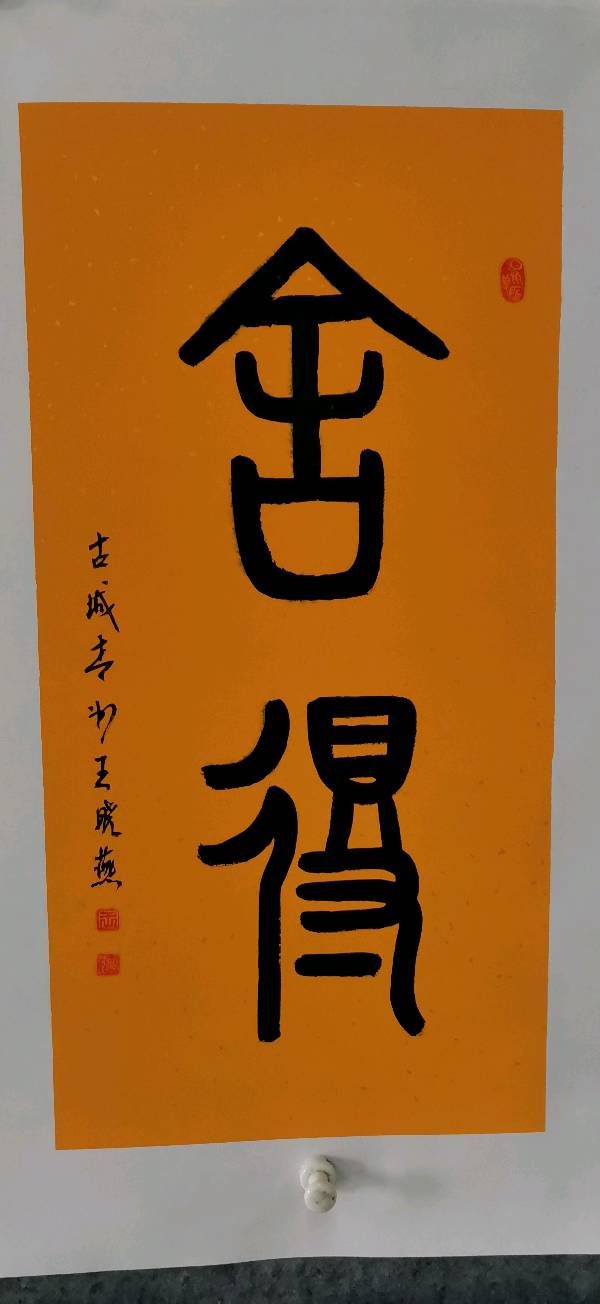 舍得
古城青州王晓燕